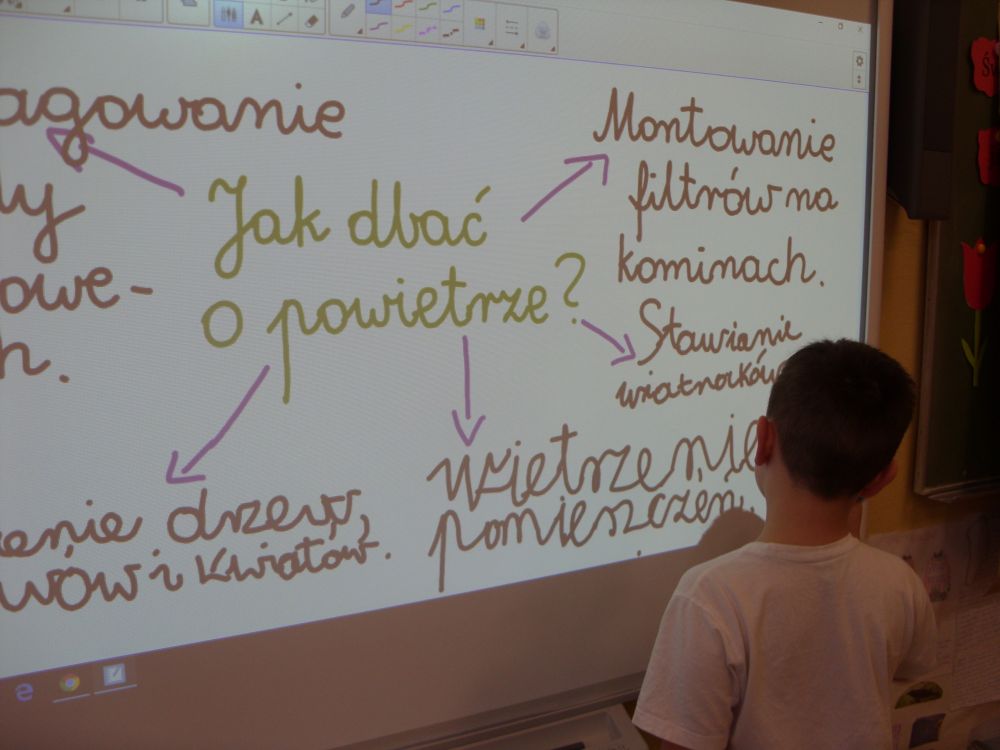 agowanie
ły
owe-
h.
Jak dbać
o powietrze?
Montowanie
filtrów na
kominach.
Stawianie
wietrzenie
pomieszczeń.
enie drzew,
wów i kwiatów.